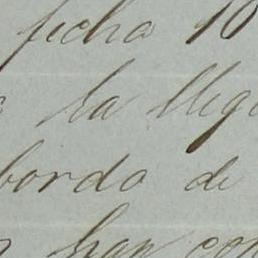 fecha 10
la llega
bordo de
han con